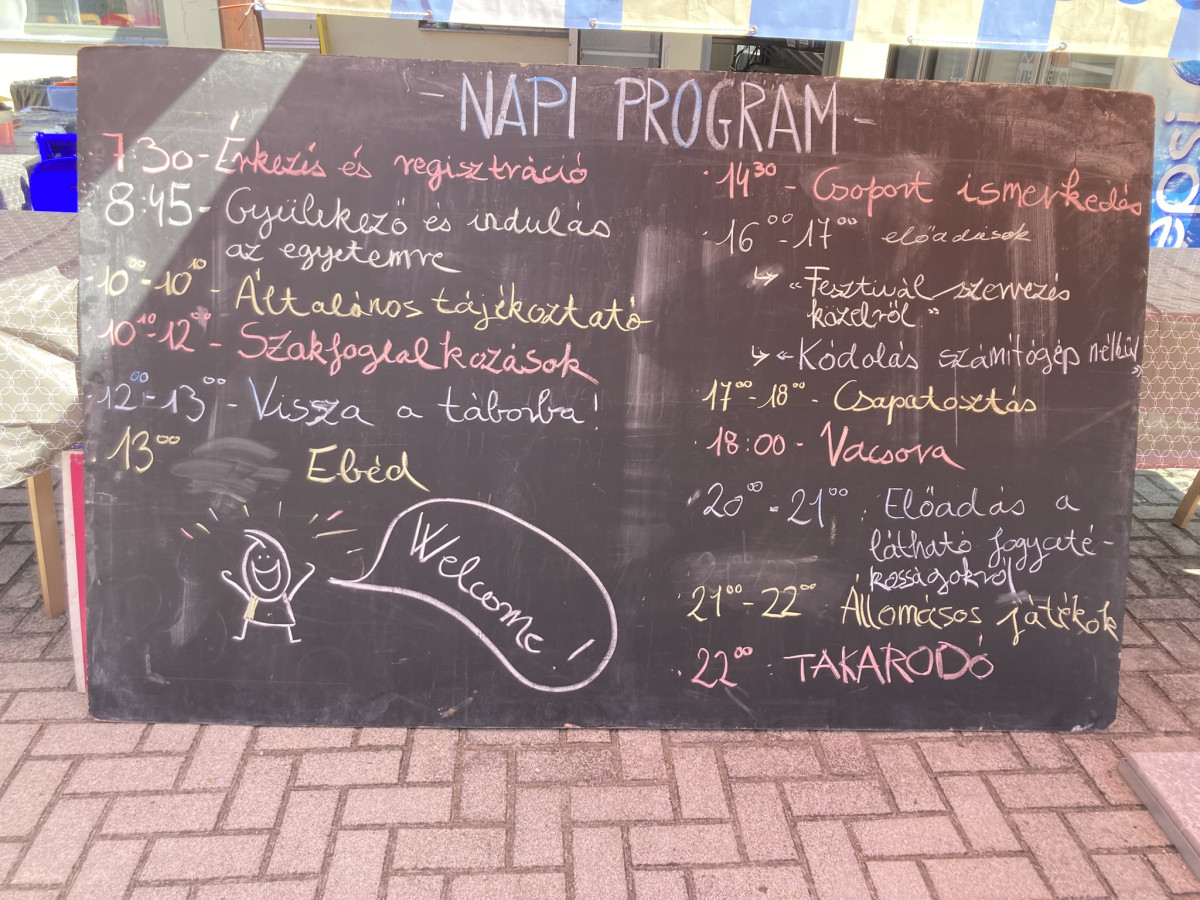 - NAPI PROGRAM -
7:30 - Érkezis és regisztráció
8:45 - Gyülekező és indulás
az egyetemre
10⁰⁰-10¹⁰ - Általános tájékoztató
10¹⁰-12⁰⁰ - Szakfoglalkozások
12⁰⁰-13⁰⁰ - Vissza a táborba!
13⁰⁰ Ebéd
Welcome!
14³⁰ - Csoport ismerkedás
16⁰⁰-17⁰⁰ előadások
↳ "Fesztivál szervezés
közelről"
↳ "Kódolás számítógép nélkül"
17⁰⁰-18⁰⁰ - Csapatosztás
18:00 - Vacsora
20⁰⁰-21⁰⁰: Előadás a
látható fogyaté-
kosságokról
21⁰⁰-22⁰⁰ Állomásos játékok
22⁰⁰: TAKARODÓ